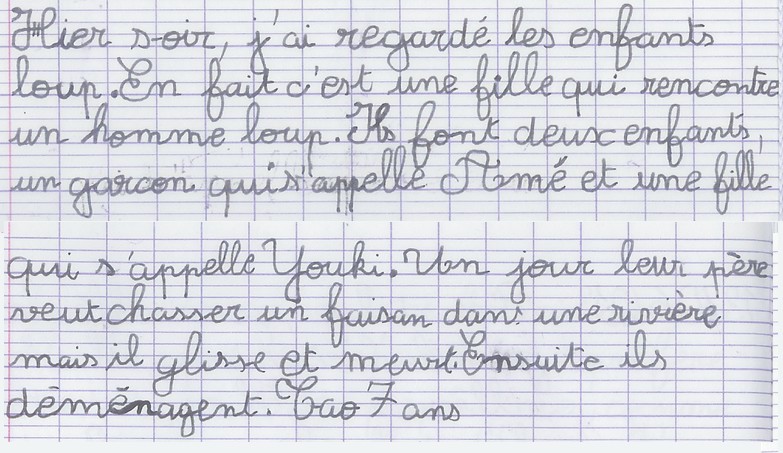 Hier soir, j'ai regardé les enfants
loup. En fait c'est une fille qui rencontre
un homme loup. Ils font deux enfants,
un garcon qui s'appelle Amé et une fille
qui s'appelle Youki. Un jour leur père
veut chasser un faisan dans une rivière
mais il glisse et meurt. Ensuite ils
déménagent. Cao 7 ans